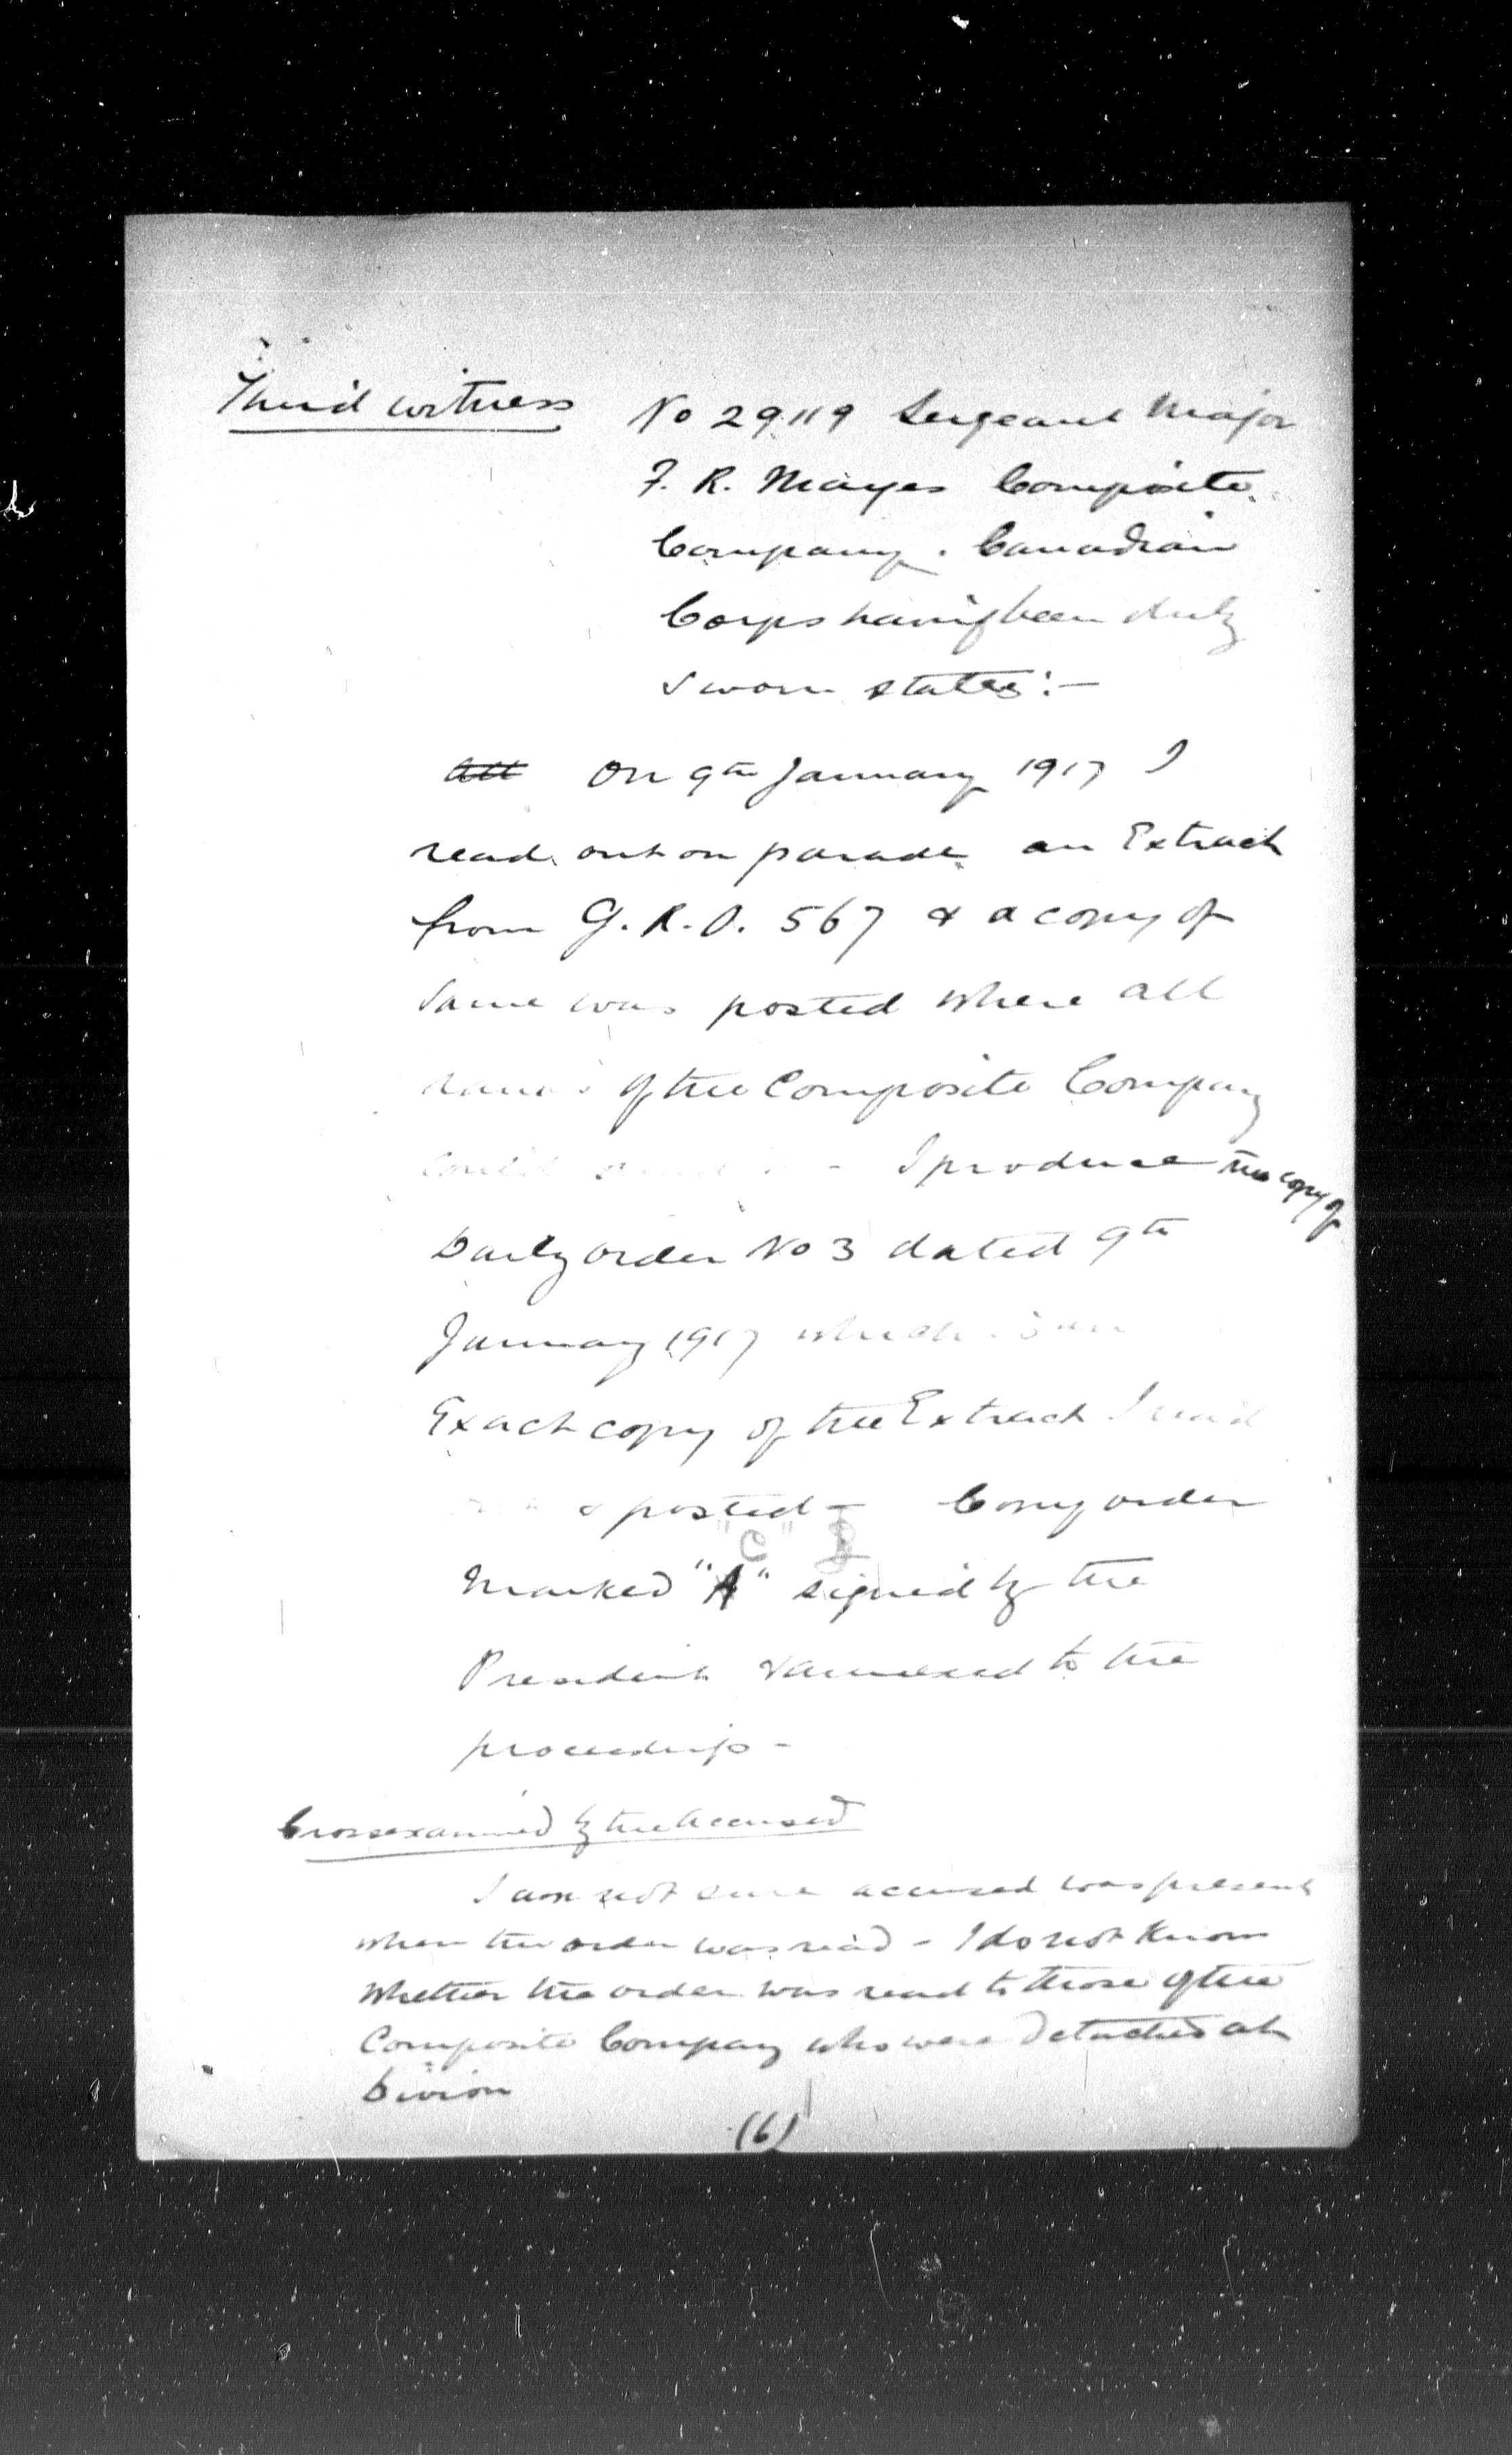 Third witness
No 29119 Sergeant Major
F. R. Mayes Composite
Company. Canadian
Corps having been duly
sworn states:-
All On 9th January 1917 I
read out on parade an Extract
from G.R.O. 567 & a copy of
same was posted where all
ranks of the Composite Company
could - I produce the copy of
Daily order No 3 dated 9th
January 1917 which is an
Exact copy of the Extract I read
& posted - Copy order
"C"
Marked "A" signed by the
President & annexed to the
proceedings -
Cross examined by the Accused
I am not sure accused was present
when the order was read - I do not know
whether the order was read to those of the
Composite Company who were detached at
Division
(6)